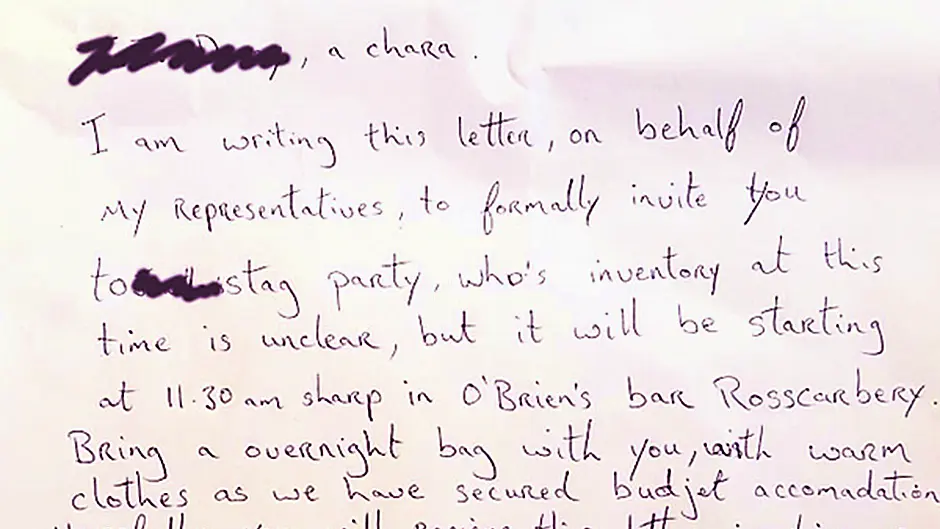 , a chara.
I am writing this letter, on behalf of
My Representatives, to formally invite you
to stag party, who's inventory at this
time is unclear, but it will be starting
at 11.30am sharp in O'Brien's bar Rosscarbery.
Bring a overnight bag with you, with warm
clothes as we have secured budjet accomadation
you will this